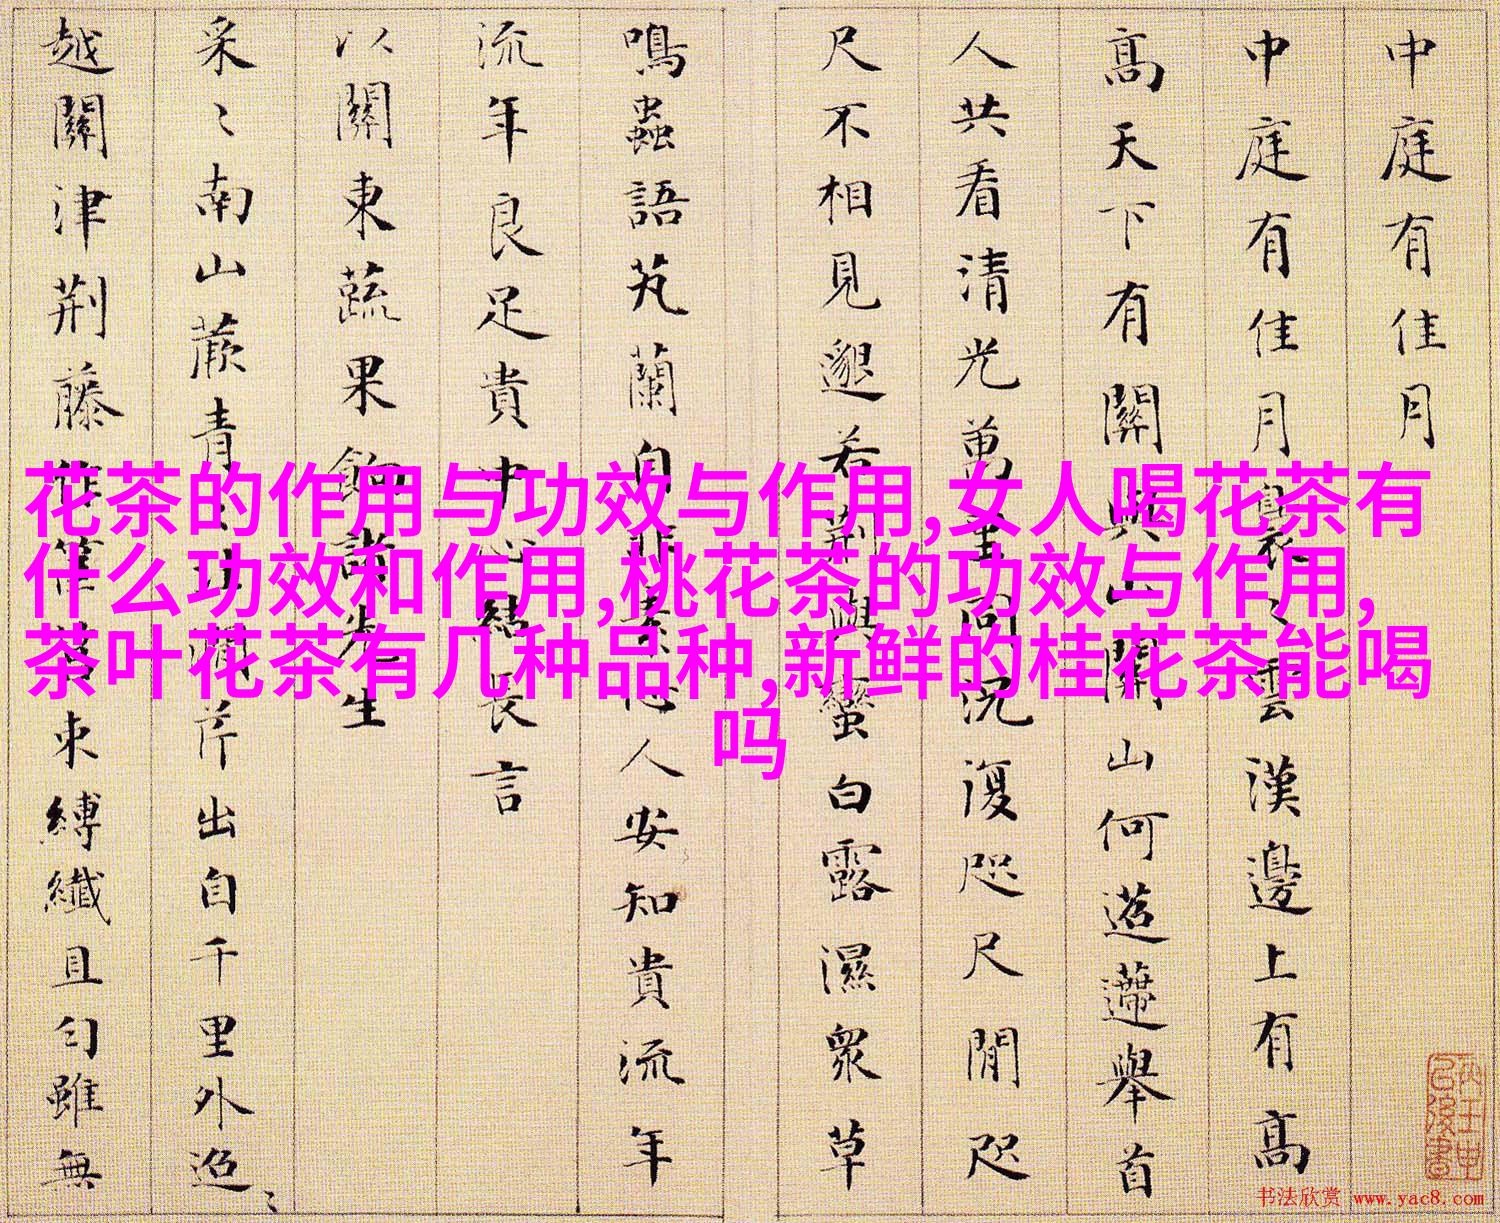 中庭有佳月
中庭有佳月裊〻雲漢邊上有高
高天下有關與山關山何迢遰舉首
人共看清光萬里同況復咫尺閒咫
尺不相見邈若荆與蠻白露濕衆草
鳴蟲語芄蘭自非素心人安知貴流年
流年良足貴中心結長言
以關東蔬果餉諸先生
采〻南山蕨青〻澗芹出自千里外迢〻
越關津荆藤作束縛纖且勻雖無
花茶的作用与功效与作用,女人喝花茶有
什么功效和作用,桃花茶的功效与作用,
茶叶花茶有几种品种,新鲜的桂花茶能喝
吗
书法欣赏 www.yac8.com